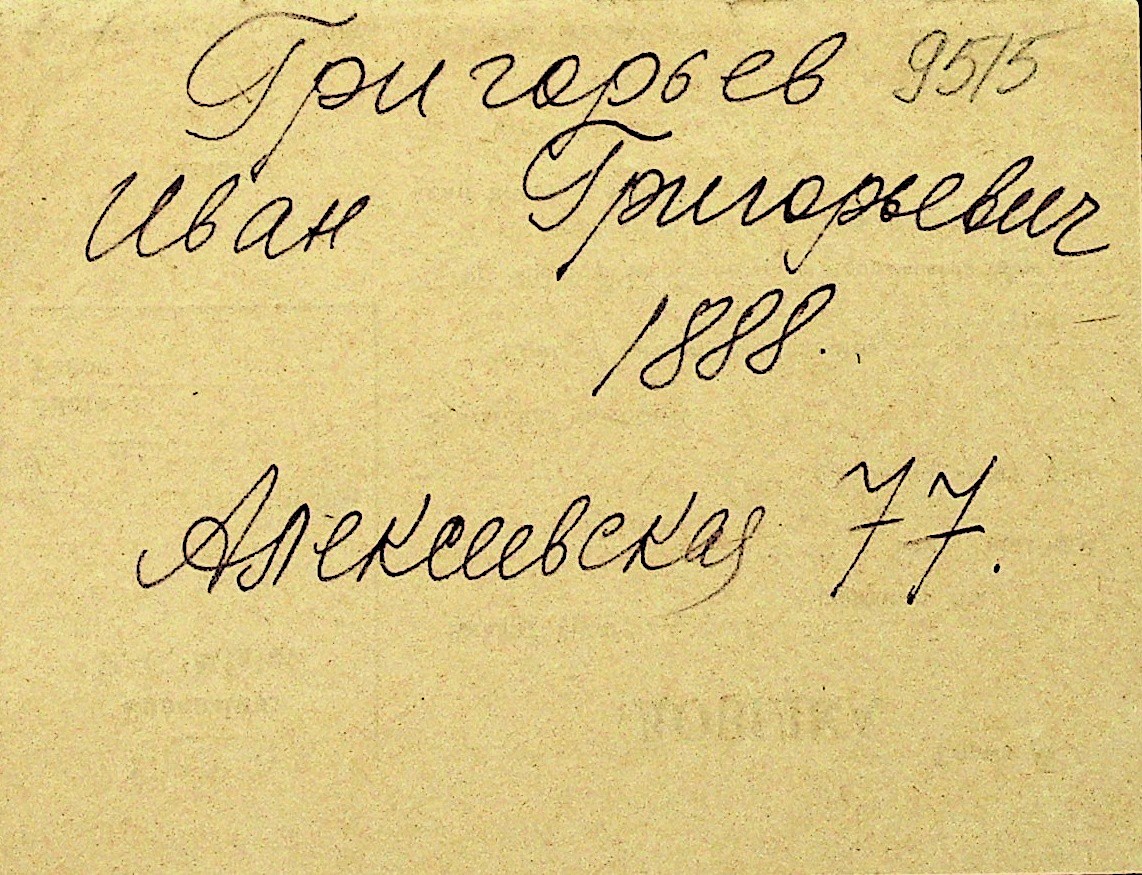 Григорьев 9515
Иван Григорьевич
1888.
Алексеевская 77.